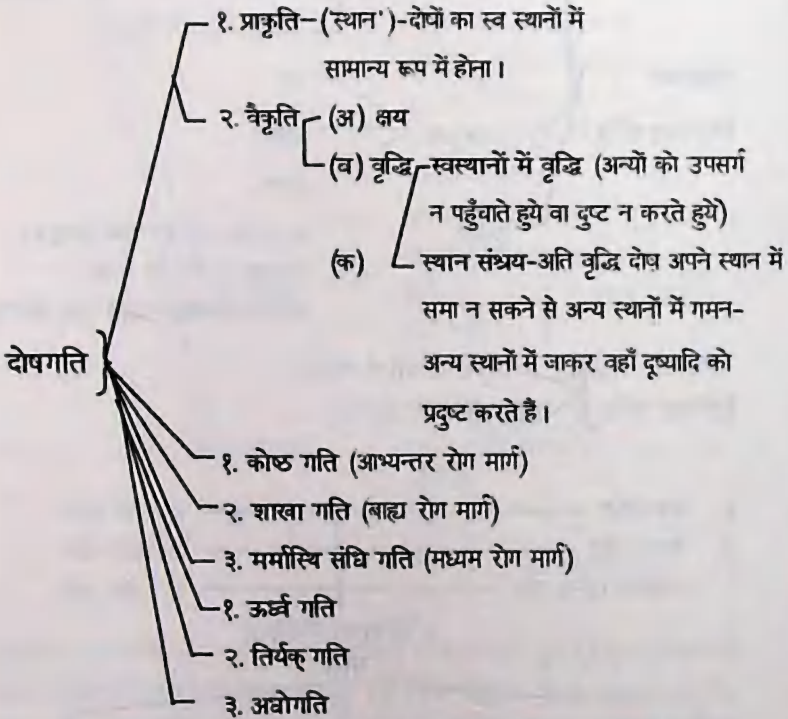 १. प्राकृति–('स्थान')-दोषों का स्व स्थानों में
सामान्य रूप में होना।
२. वैकृति (अ) क्षय
(व) वृद्धि स्वस्थानों में वृद्धि (अन्यों को उपसर्ग
न पहुँचाते हुये वा दुष्ट न करते हुये)
(क) स्थान संश्रय-अति वृद्धि दोष अपने स्थान में
समा न सकने से अन्य स्थानों में गमन–
दोषगति अन्य स्थानों में जाकर वहाँ दूष्यादि को
प्रदुष्ट करते हैं।
१. कोष्ठ गति (आभ्यन्तर रोग मार्ग)
२. शाखा गति (बाह्य रोग मार्ग)
३. मर्मास्थि संधि गति (मध्यम रोग मार्ग)
१. ऊर्ध्व गति
२. तिर्यक् गति
३. अधोगति